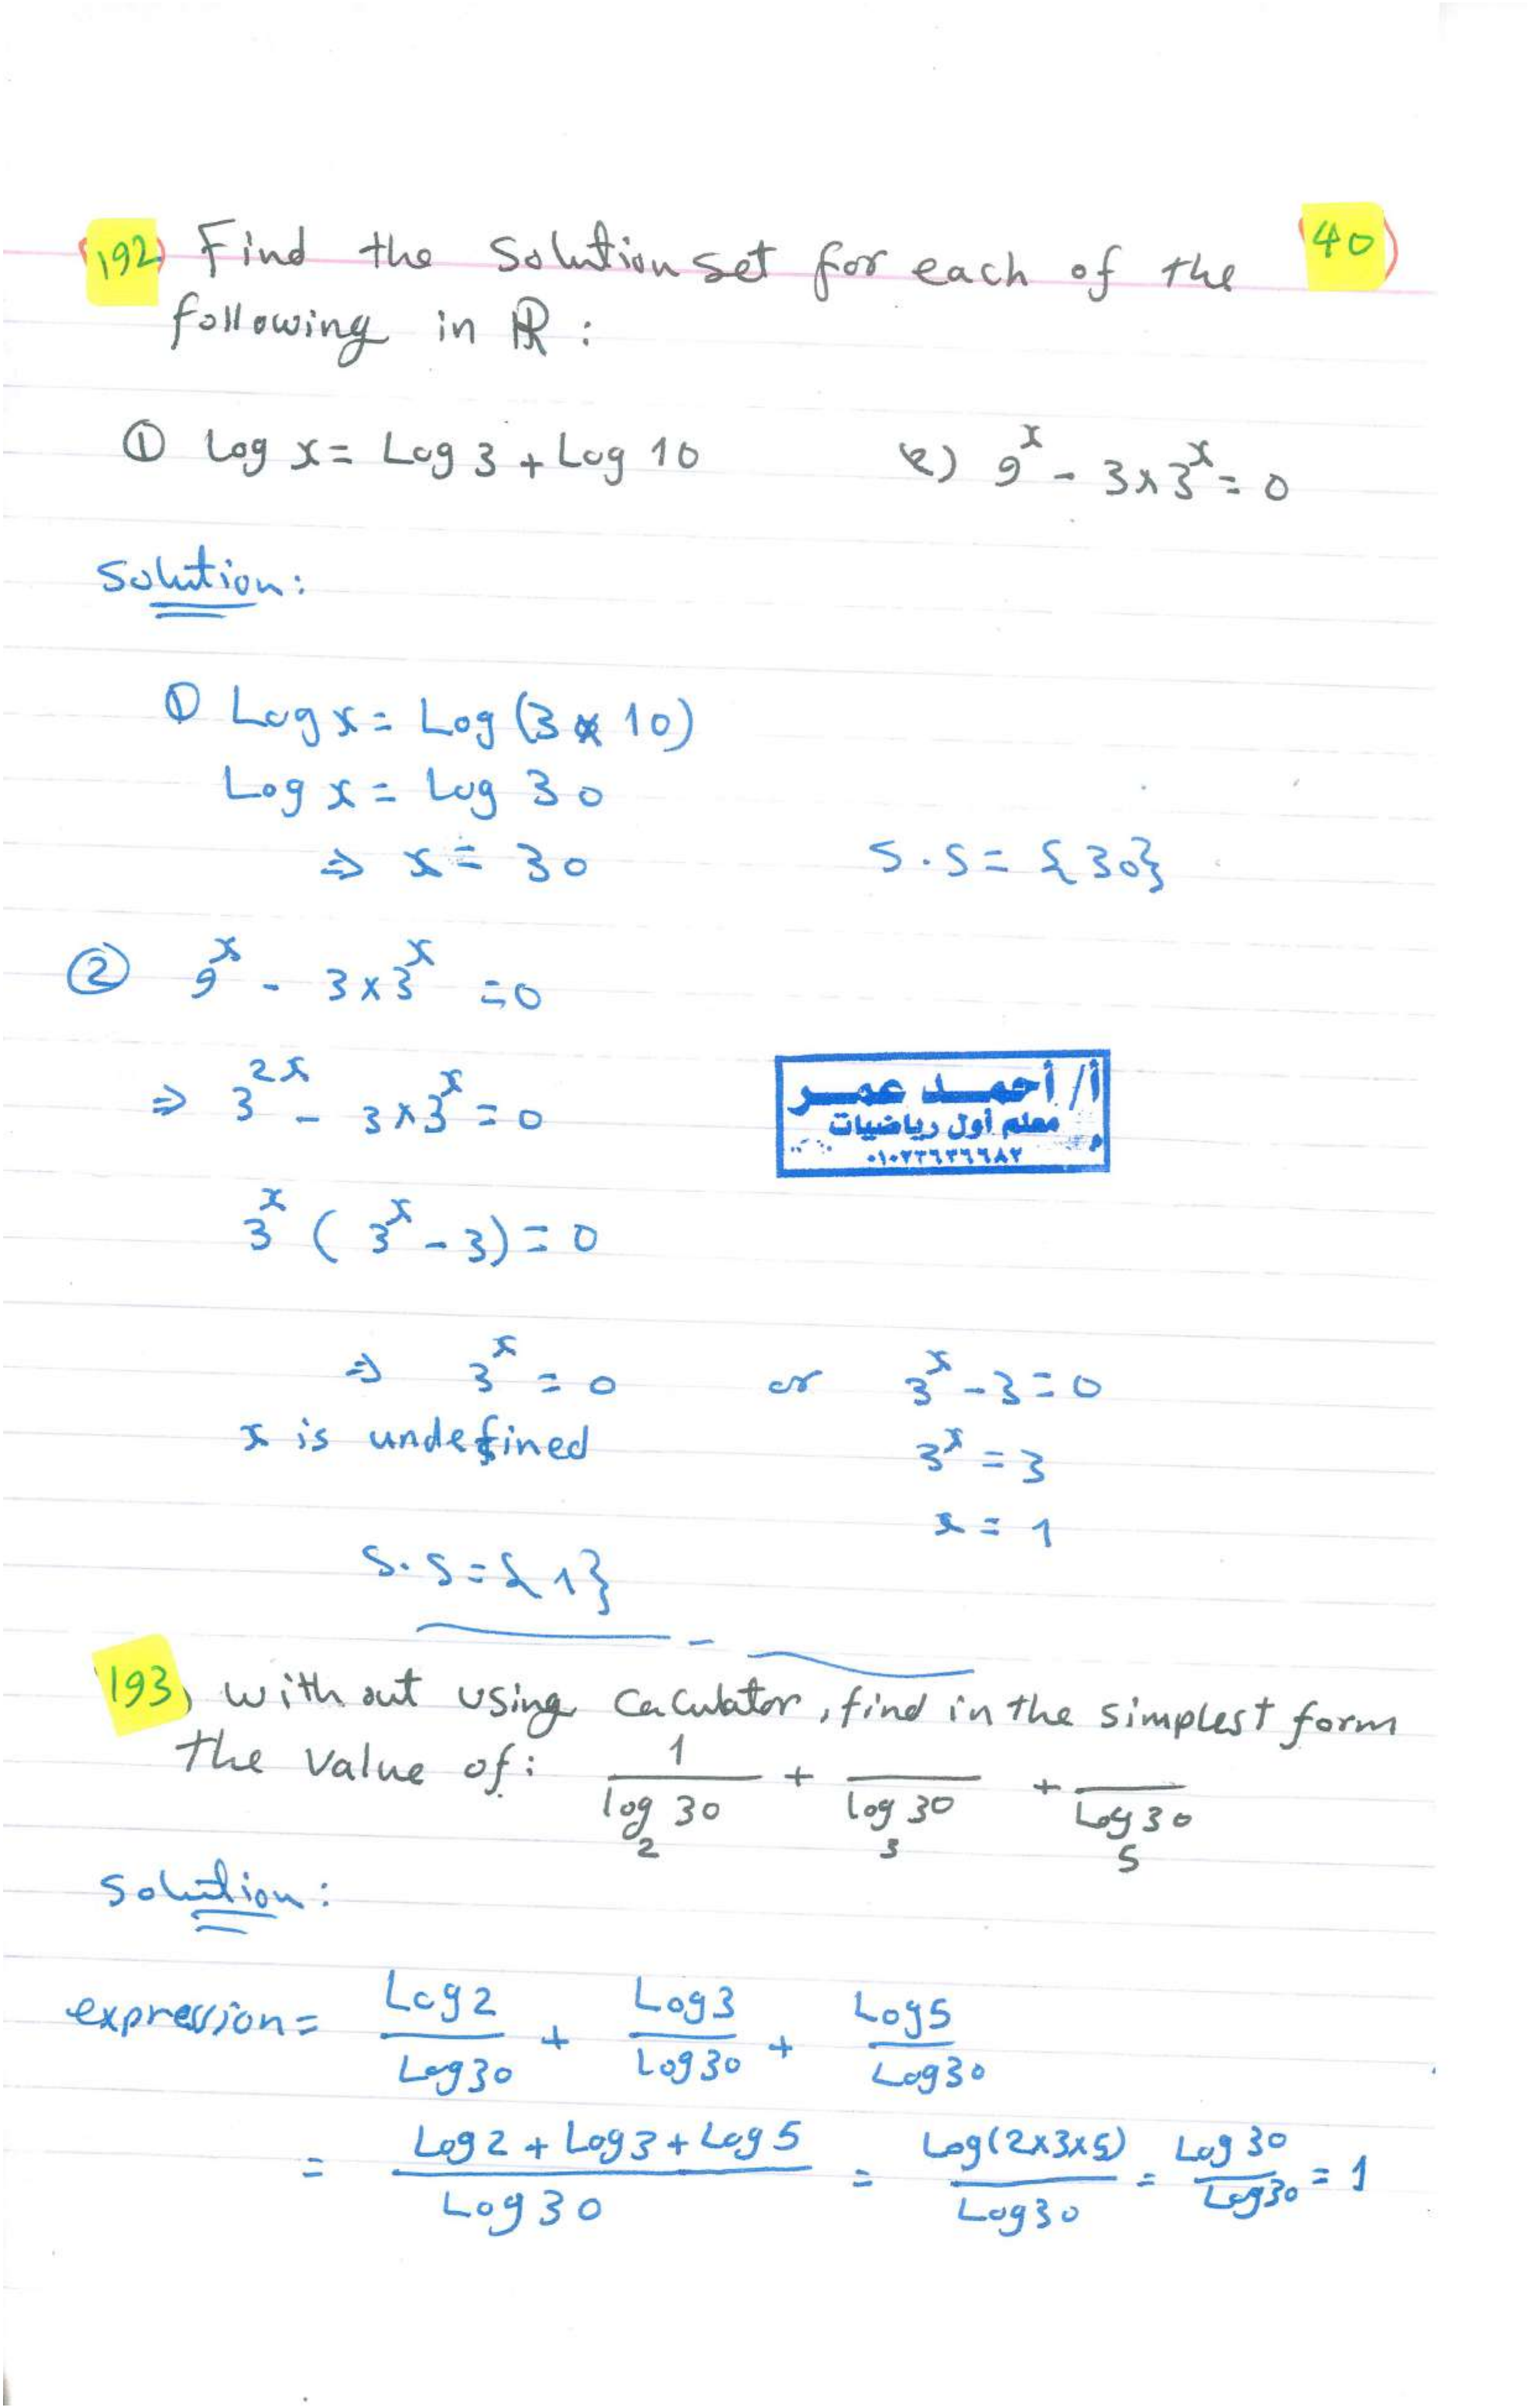 192) Find the solution set for each of the
40)
following in ℝ :
① Log x = Log 3 + Log 10     2) 9^x - 3×3^x = 0
Solution:
① Log x = Log (3 × 10)
Log x = Log 30
⇒ x = 30     S.S = {30}
② 9^x - 3×3^x = 0
⇒ 3^2x - 3×3^x = 0
أ/ أحمد عمر
معلم أول رياضيات
٠١٠٢٢٦٢٦٦٨٢
3^x ( 3^x - 3) = 0
⇒ 3^x = 0     or     3^x - 3 = 0
x is undefined     3^x = 3
x = 1
S.S = {1}
193) without using caculator, find in the simplest form
the value of: 1/log_2 30 + /log_3 30 + /Log_5 30
solution:
expression = Log2/Log30 + Log3/Log30 + Log5/Log30
= (Log2 + Log3 + Log5)/Log30 = Log(2×3×5)/Log30 = Log30/Log30 = 1